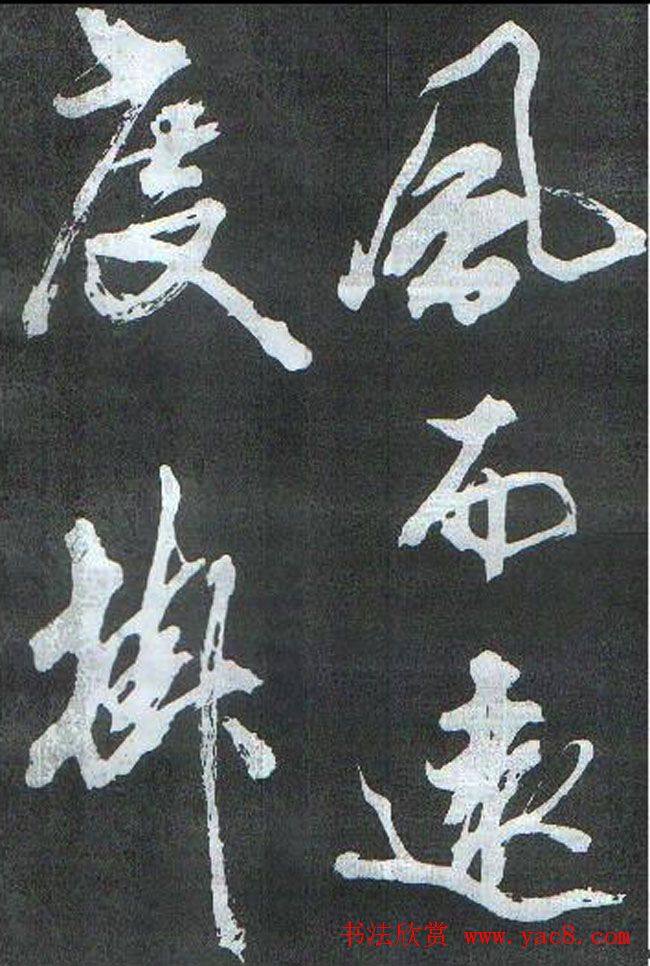 風而遠
度掛
书法欣赏 www.yac8.com